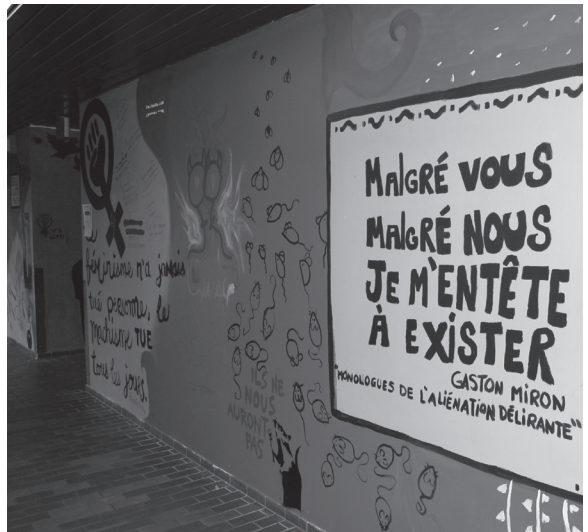 féminisme n'a jamais
tué personne, le
machisme TUE
tous les jours.
ILS NE
NOUS
AURONT
PAS
MALGRÉ VOUS
MALGRÉ NOUS
JE M'ENTÊTE
À EXISTER
GASTON MIRON
"MONOLOGUES DE L'ALIÉNATION DÉLIRANTE"